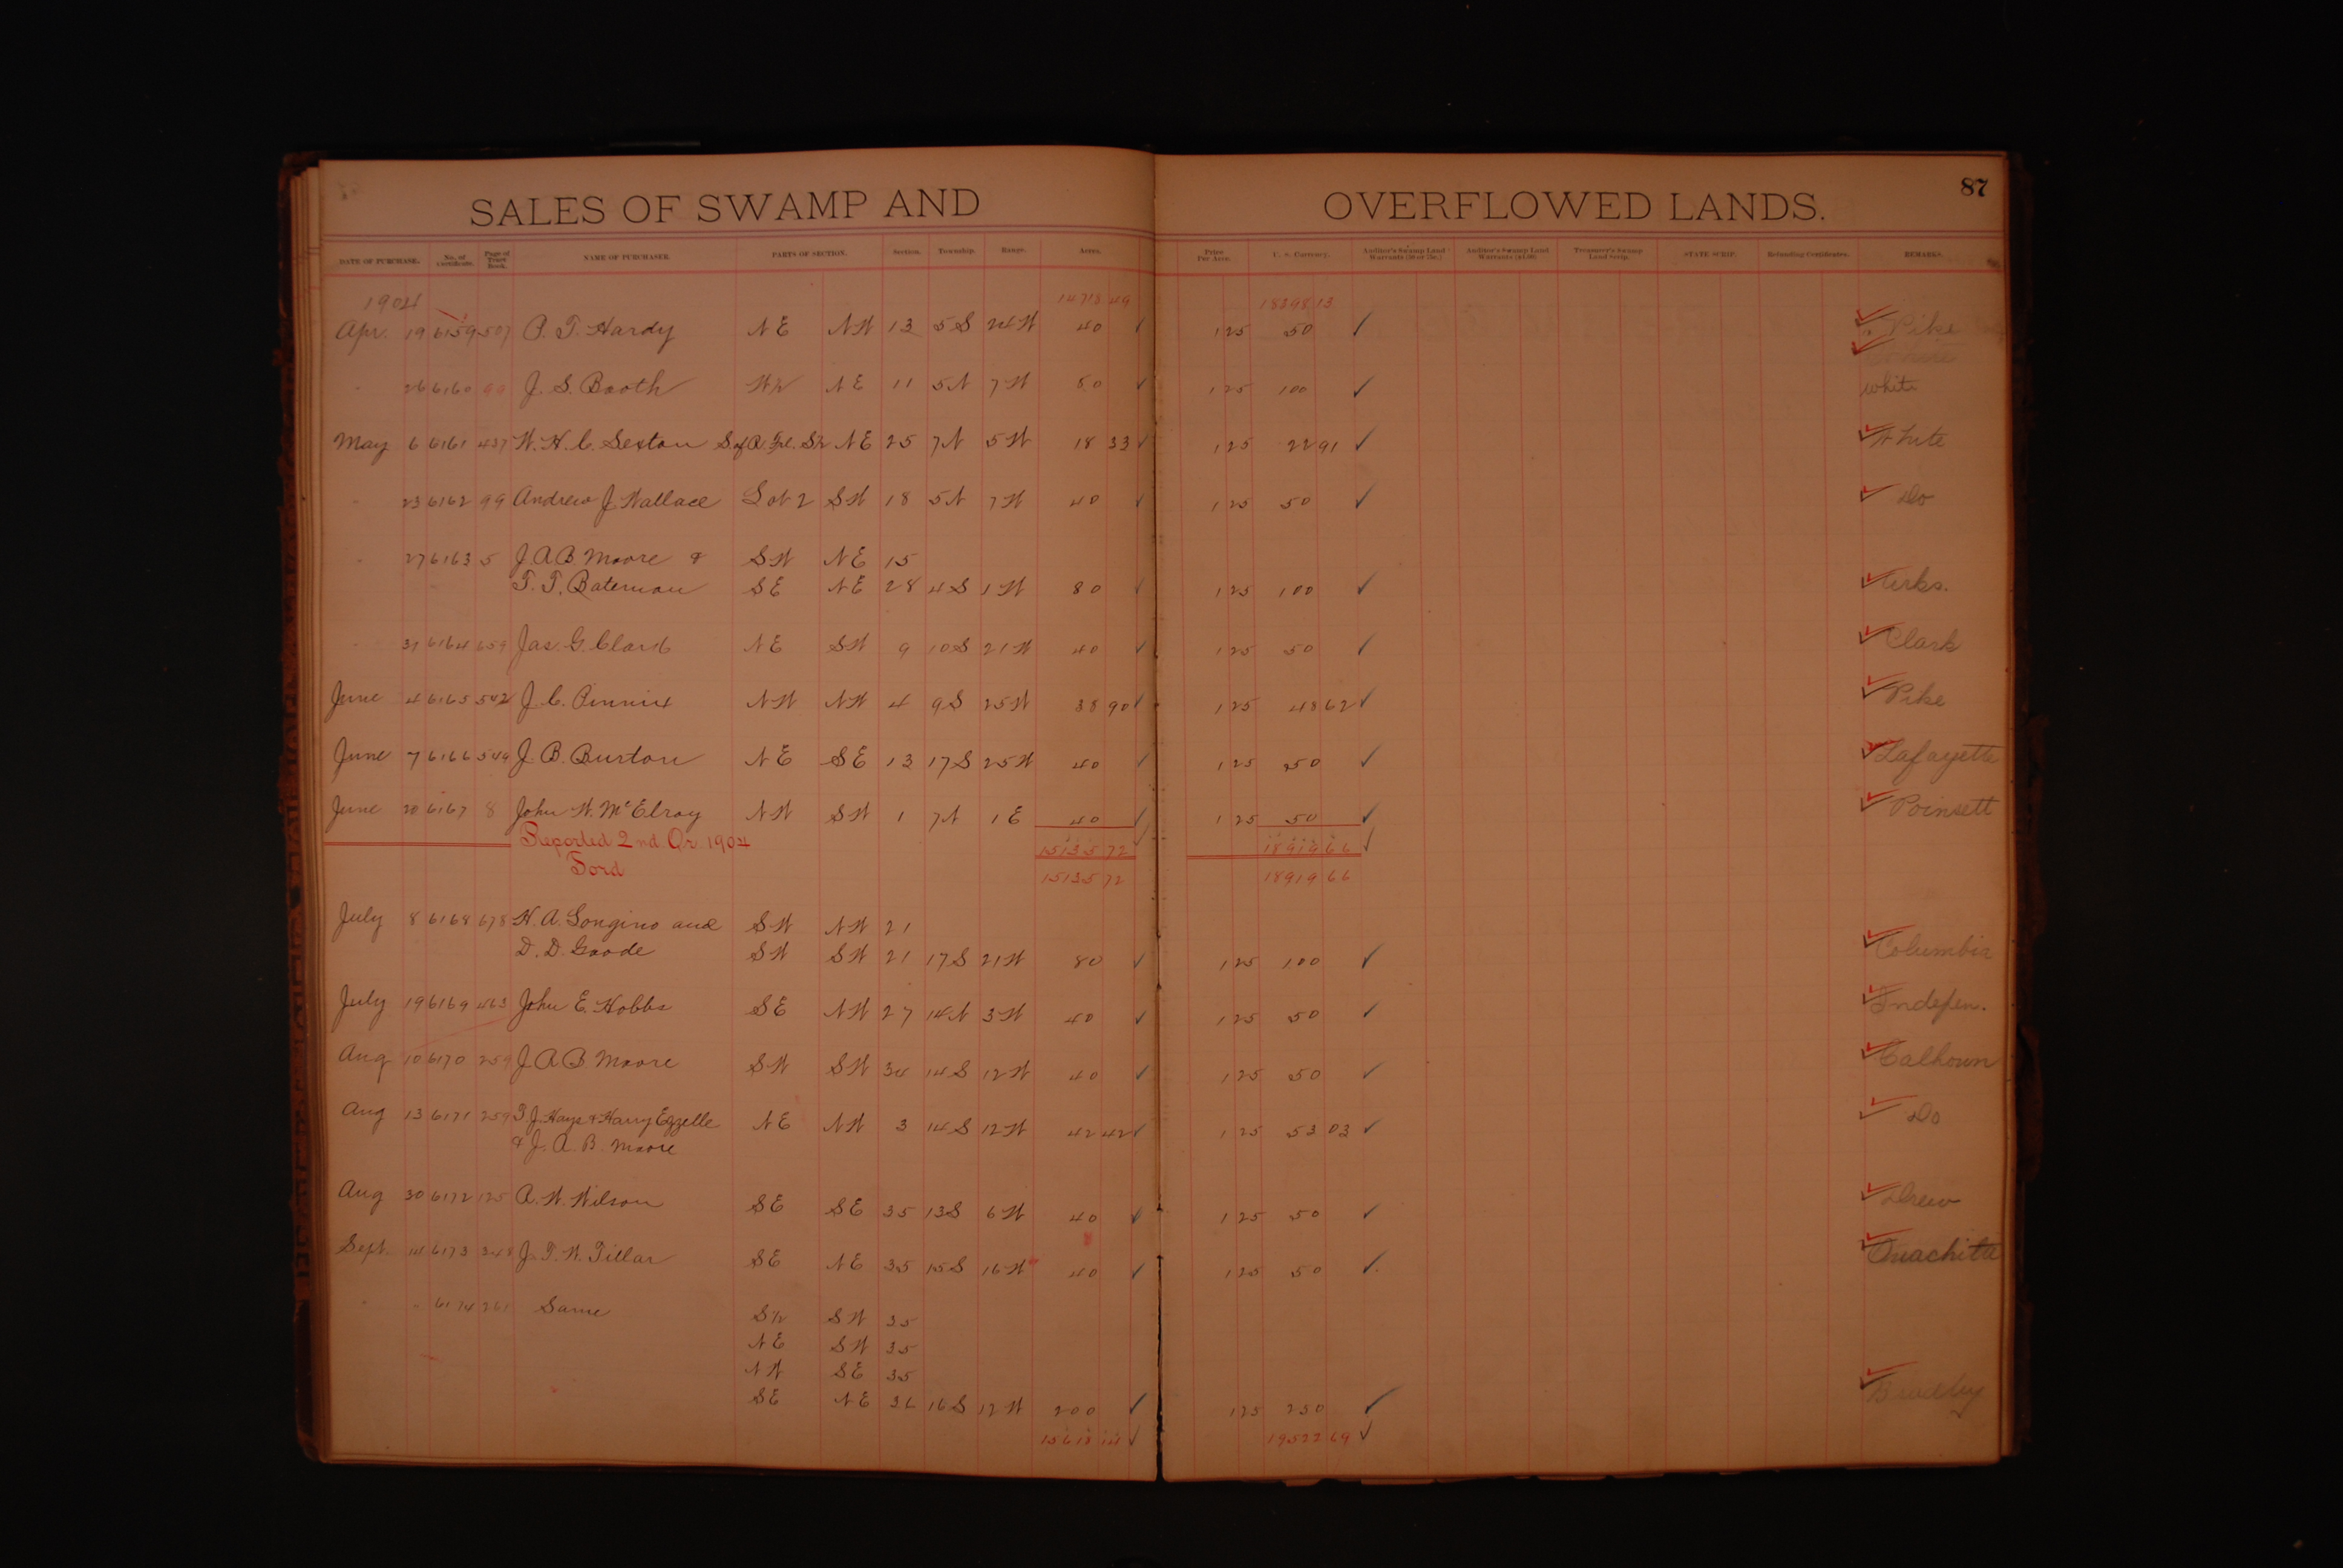 SALES OF SWAMP AND OVERFLOWED LANDS. 87
DATE OF PURCHASE. No. of Certificate. Page of Tract Book. NAME OF PURCHASER. PARTS OF SECTION. Section. Township. Range. Acres. Price Per Acre. U. S. Currency. Auditor's Swamp Land Warrants Auditor's Swamp Land Warrants Treasurer's Swamp Land Scrip. STATE SCRIP. Refunding Certificates. REMARKS.
1904 14718 49 18398 13
Apr. 19 6159 507 P. T. Hardy NE NW 13 5S 24W 40 ✓ 1 25 50 ✓ Pike
" 26 6160 J. S. Booth W½ NE 11 5N 7W 80 ✓ 1 25 100 ✓ white
May 6 6161 437 W. H. C. Sexton S of R Frl. S½ NE 25 7N 5W 18 33 ✓ 1 25 22 91 ✓ White
" 23 6162 99 Andrew J. Wallace Lot 2 SW 18 5N 7W 40 ✓ 1 25 50 ✓ Do
" 27 6163 5 J. A. B. Moore & SW NE 15
T. T. Bateman SE NE 28 4S 1W 80 ✓ 1 25 100 ✓ Arks.
" 31 6164 659 Jas. G. Clark NE SW 9 10S 21W 40 ✓ 1 25 50 ✓ Clark
June 4 6165 542 J. C. Pinnix NW NW 4 9S 25W 38 90 ✓ 1 25 48 62 ✓ Pike
June 7 6166 549 J. B. Burton NE SE 13 17S 25W 40 ✓ 1 25 50 ✓ Lafayette
June 20 6167 8 John W. McElroy NW SW 1 7N 1E 40 ✓ 1 25 50 ✓ Poinsett
Reported 2nd. Qr. 1904 15135 72 ✓ 18919 66 ✓
Ford 15135 72 18919 66
July 8 6168 678 H. A. Longino and SW NW 21
D. D. Goode SW SW 21 17S 21W 80 ✓ 1 25 100 ✓ Columbia
July 19 6169 463 John E. Hobbs SE NW 27 14N 3W 40 ✓ 1 25 50 ✓ Indepen.
Aug 10 6170 259 J. A. B. Moore SW SW 34 14S 12W 40 ✓ 1 25 50 ✓ Calhoun
Aug 13 6171 259 T. J. Hays & Harry Ezzelle NE NW 3 14S 12W 42 42 ✓ 1 25 53 03 ✓ Do
& J. A. B. Moore
Aug 30 6172 125 A. W. Wilson SE SE 35 13S 6W 40 ✓ 1 25 50 ✓ Drew
Sept. 14 6173 348 J. T. W. Tillar SE NE 35 15S 16W 40 ✓ 1 25 50 ✓ Ouachita
" " 6174 261 Same S½ SW 35
NE SW 35
NW SE 35
SE NE 36 16S 12W 200 ✓ 1 25 250 ✓ Bradley
15618 14 ✓ 19522 69 ✓